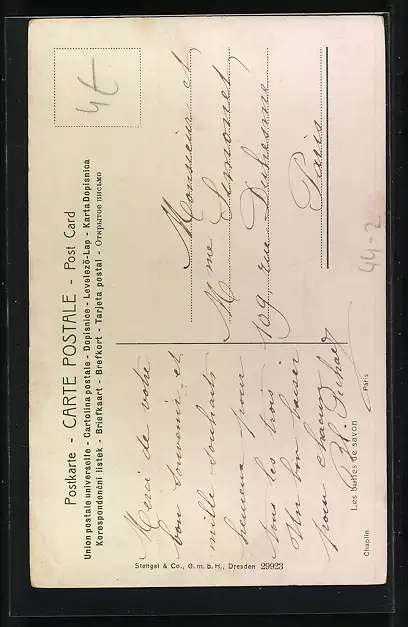 Postkarte - CARTE POSTALE - Post Card
Union postale universelle - Cartolina postale - Dopisnice - Levelező-Lap - Karta Dopisnica
Korespondenční lístek - Briefkaart - Brefkort - Tarjeta postal - Открытое письмо
4€
Merci de votre
bon souvenir et
mille souhaits
heureux pour
tous les trois.
Un bon baiser
pour chacun
Monsieur et
Mme Simonet
109 rue Duhesme
Paris
44-2
Stengel & Co., G. m. b. H., Dresden 29923
Chaplin
Les bulles de savon
Paris